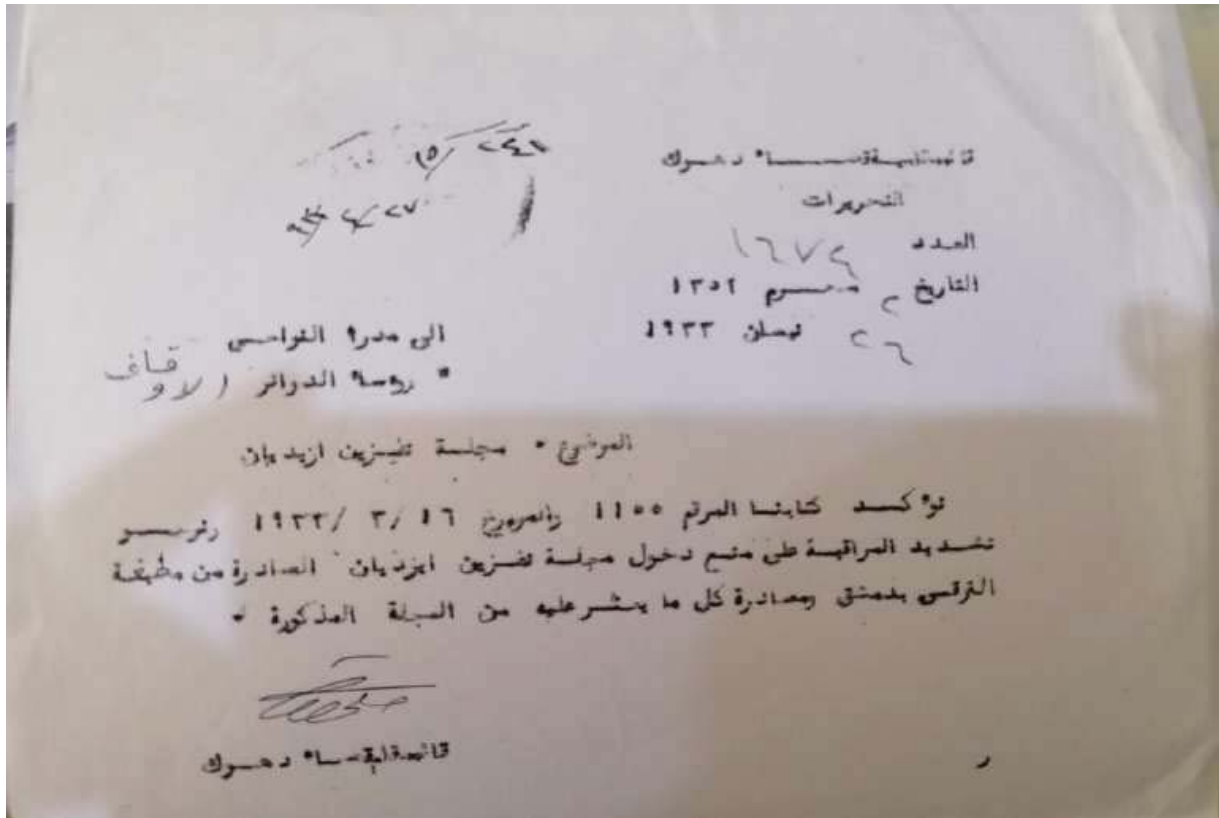 قائمقامية قضاء دهوك
التحريرات
العدد ١٦٧٤
التاريخ ٢ محرم ١٣٥٢
٢٦ نيسان ١٩٣٣
٢٤١ / ١٥
٢٧ / ٤ / ٩٣٣
الى مدراء النواحي
" رؤساء الدوائر / الاوقاف
الموضوع • مجلة تفيزين ازيديان
نؤكد كتابنا المرقم ١١٥٥ والمؤرخ ١٦ /٣ /١٩٣٣
تشديد المراقبة على منع دخول مجلة تفزين ايزديان الصادرة من مطبعة
الترقي بدمشق ومصادرة كل ما يعثر عليه من المجلة المذكورة •
قائمقام قضاء دهوك
ر